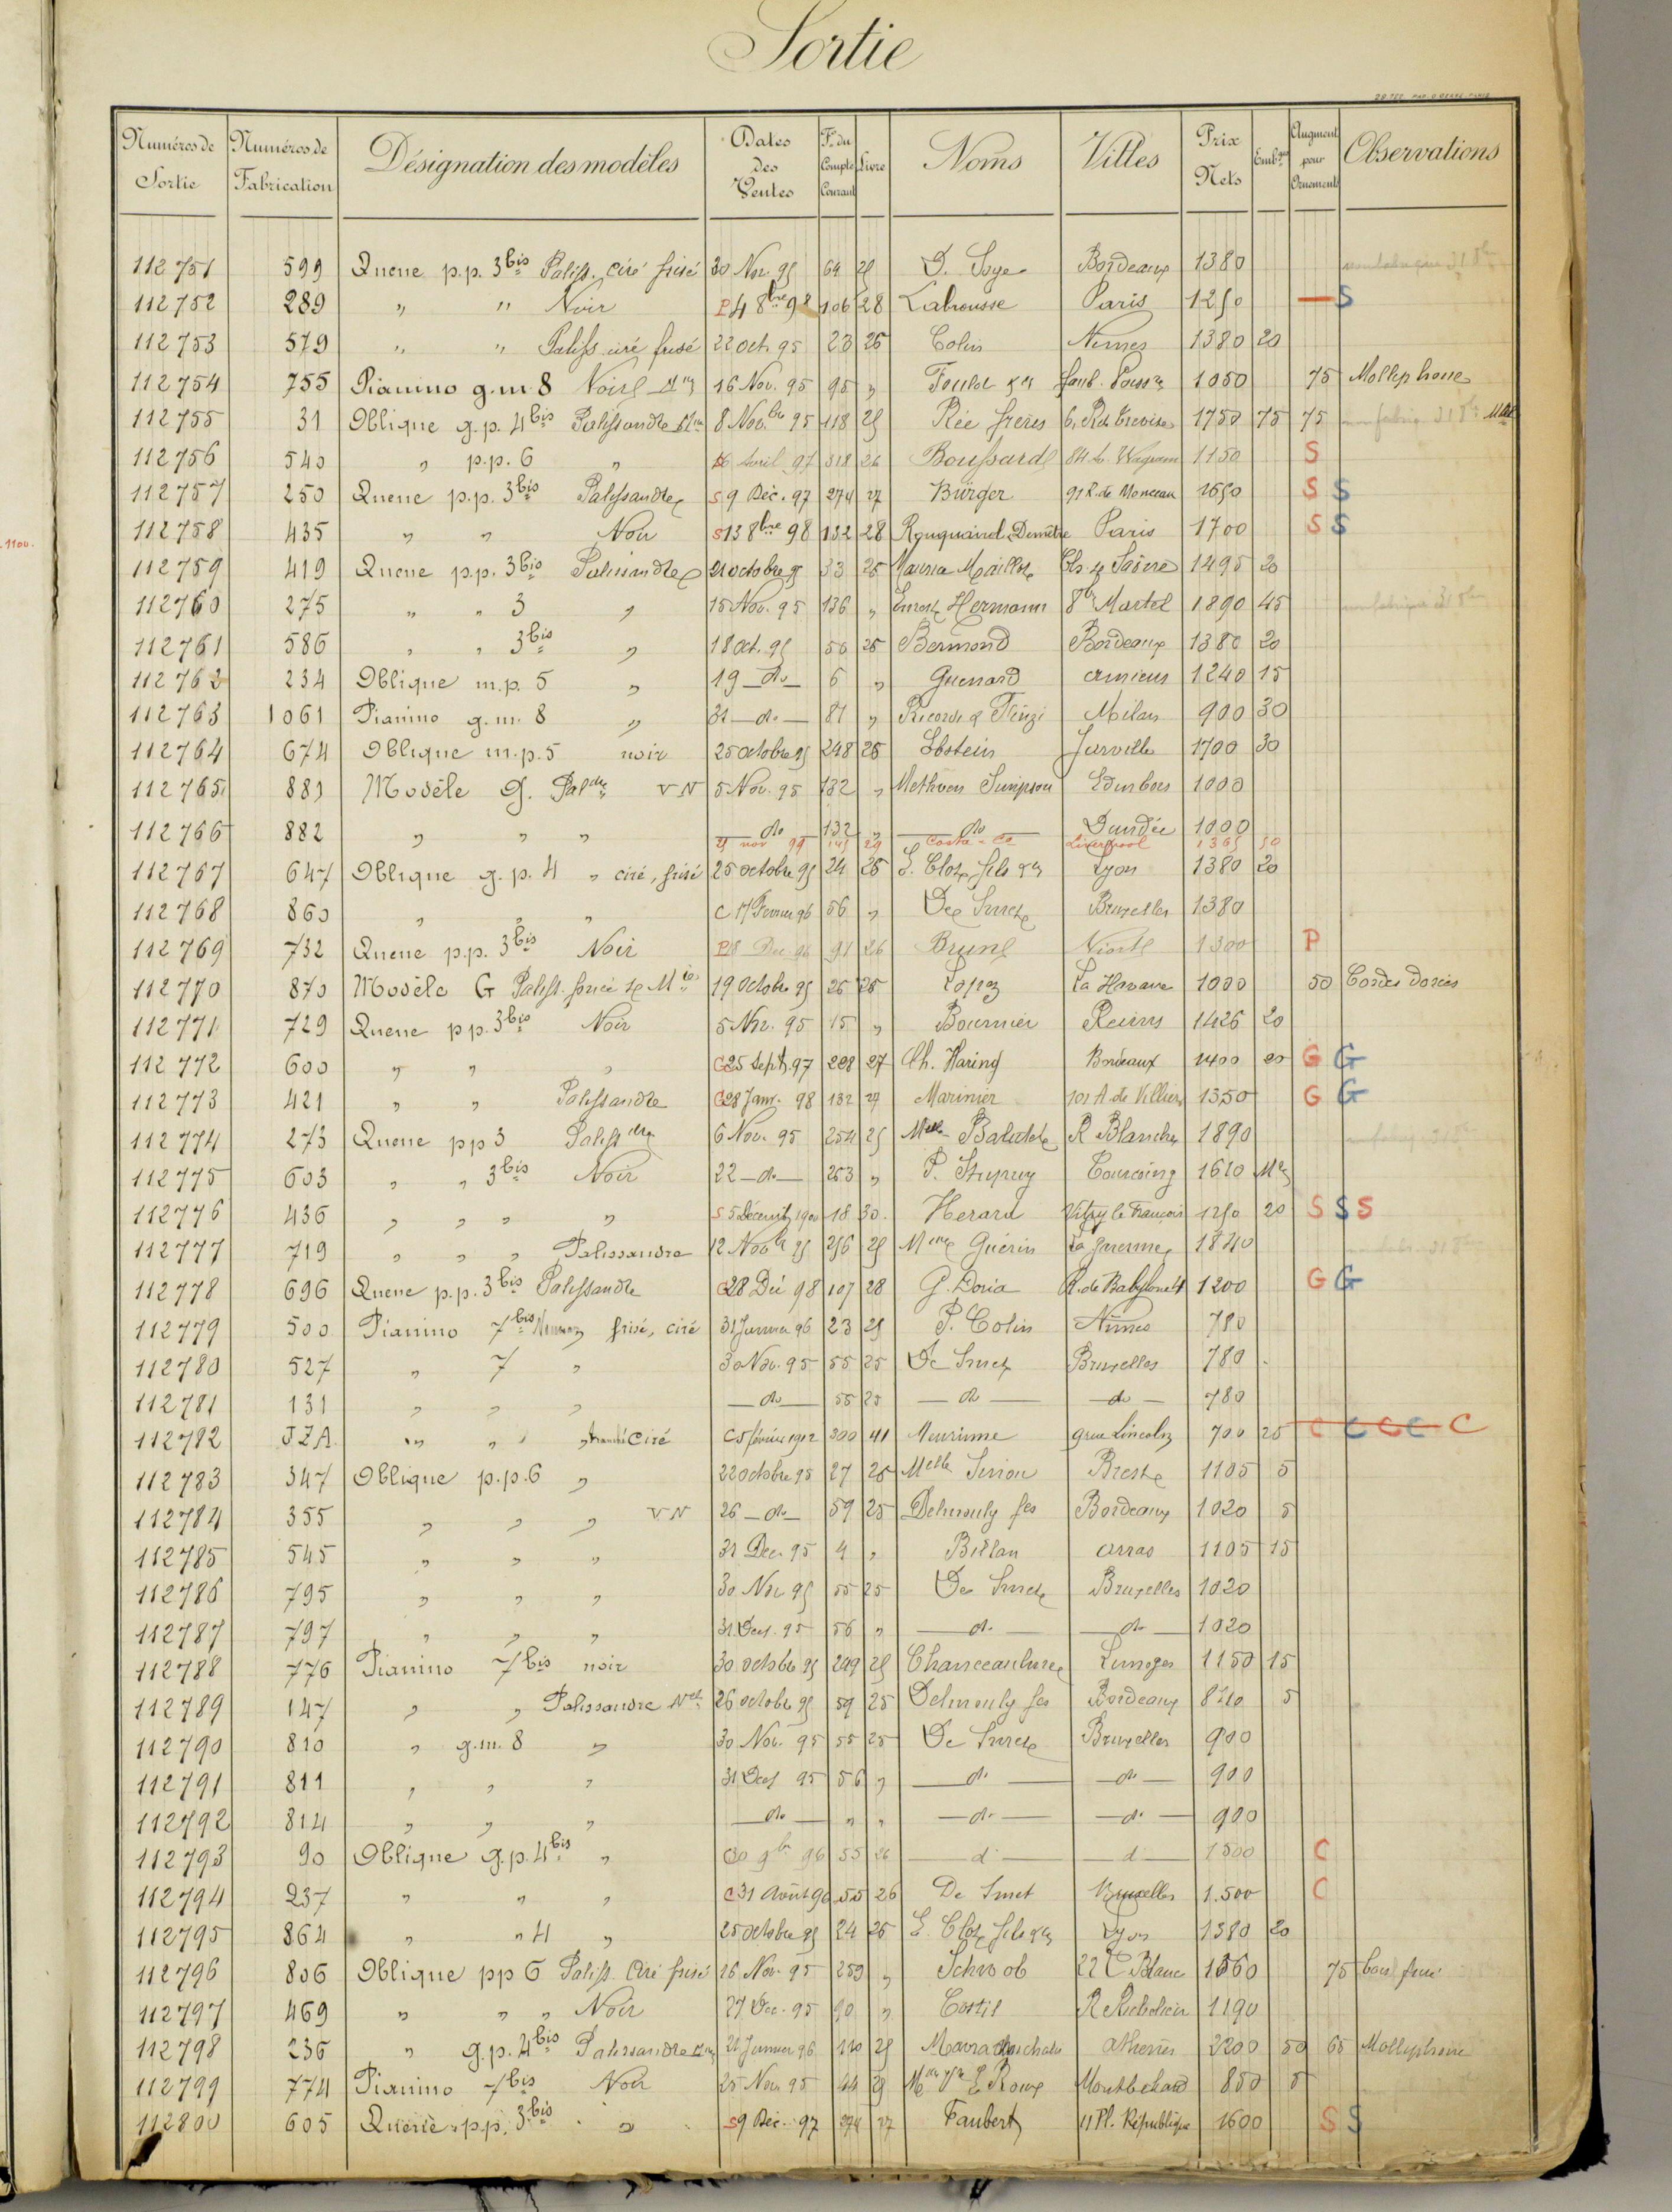 Sortie
Numéros de Sortie Numéros de Fabrication Désignation des modèles Dates des Ventes Fº du Compte Courant Livre Noms Villes Prix Nets Emb.ge Augment pour Ornement Observations
112751 599 Queue p.p. 3bis Paliss. ciré frisé 30 Nov. 95 64 25 D. Soye Bordeaux 1380
112752 289 " " Noir P 4 8bre 98 106 28 Labrousse Paris 1250 — S
112753 579 " " Paliss ciré frisé 22 oct. 95 23 25 Colin Nimes 1380 20
112754 755 Pianino g.m. 8 Noir 16 Nov. 95 95 " faub. Poiss. 1050 75 Molliphone
112755 31 Oblique g.p. 4bis Palissandre 8 Nov.bre 95 118 25 Rée frères 6, R. de Trevise 1750 75 75
112756 540 " p.p. 6 " 16 Avril 97 318 26 Boussard 84 Av. Wagram 1150 S
112757 250 Queue p.p. 3bis Palissandre S 9 Déc. 97 274 27 Bürger 91 R. de Monceau 1650 S S
112758 435 " " Noir S 13 8bre 98 132 28 Rouquairol Demètre Paris 1700 S S
.1100.
112759 419 Queue p.p. 3bis Palissandre 21 octobre 95 33 25 Maurice Maillot Ch. s/ Saône 1495 20
112760 275 " " 3 " 15 Nov. 95 136 " Ernest Hermann 8 r. Martel 1890 45
112761 586 " " 3bis " 18 Oct. 95 56 25 Bermond Bordeaux 1380 20
112762 234 Oblique m.p. 5 " 19 do 6 " Guenard Amiens 1240 15
112763 1061 Pianino g.m. 8 " 31 do 81 " Ricordi & Finzi Milan 900 30
112764 674 Oblique m.p. 5 noir 25 octobre 95 248 25 Ebstein Jarville 1700 30
112765 881 Modèle G. Paldre VN 5 Nov. 95 132 " Methven Simpson Edimbourg 1000
112766 882 " " " do 132 " do Dundée 1000
25 nov 99 145 29 Costa Liverpool 1365 50
112767 647 Oblique g.p. 4 " ciré, frisé 25 octobre 95 24 25 E. Clot fils & Cie Lyon 1380 20
112768 860 " " " C 17 Fevrier 96 56 " De Smet Bruxelles 1380
112769 732 Queue p.p. 3bis Noir P 18 Dec 96 91 26 Brunel Niort 1300 P
112770 870 Modèle G Paliss. foncé 19 Octobre 95 26 25 Lopez La Havane 1000 50 Cordes dorées
112771 729 Queue p.p. 3bis Noir 5 Nov. 95 15 " Bournier Reims 1426 20
112772 600 " " " C 25 Sept. 97 228 27 Ch. Haring Bordeaux 1400 20 G G
112773 421 " " Palissandre G 28 Janv. 98 182 27 Marinier 101 A. de Villiers 1350 G G
112774 273 Queue pp 3 Palissdre 6 Nov. 95 254 25 Melle R Blanche 1890
112775 603 " " 3bis Noir 22 do 263 " P. Stupuy Tourcoing 1610
112776 436 " " " " S 5 Décemb 1900 18 30 Herard Vitry le François 1250 20 S S S
112777 719 " " " Palissandre 12 Novbre 95 256 25 Mme Guérin La Garenne 1840
112778 696 Queue p.p. 3bis Palissandre G 28 Déc 98 107 28 G. Doria R. de Babylone 1200 G G
112779 500 Pianino 7bis frisé, ciré 31 Janvier 96 23 25 P. Colin Nîmes 780
112780 527 " 7 " 30 Nov. 95 55 25 De Smet Bruxelles 780
112781 131 " " " do 55 25 do do 780
112782 JZA " " " Ciré C 5 février 1912 300 41 Meurisse 9 rue Lincoln 700 25 C C C C C
112783 347 Oblique p.p. 6 " 22 octobre 95 27 25 Melle Brest 1105 5
112784 355 " " " VN 26 do 59 25 Delmouly fes Bordeaux 1020 5
112785 545 " " " 31 Dec. 95 4 " Billan Arras 1105 15
112786 795 " " " 30 Nov 95 55 25 De Smet Bruxelles 1020
112787 797 " " " 31 Dec. 95 56 " do do 1020
112788 776 Pianino 7bis noir 30 octobre 95 249 25 Limoges 1150 15
112789 147 " " Palissandre 26 octobre 95 59 25 Delmouly fes Bordeaux 840 5
112790 810 " g.m. 8 " 30 Nov. 95 55 25 De Smet Bruxelles 900
112791 811 " " " 31 Dec 95 56 " do do 900
112792 814 " " " do " " do do 900
112793 90 Oblique g.p. 4bis " C 30 9bre 96 55 26 do do 1500 C
112794 237 " " " C 31 Août 96 55 26 De Smet Bruxelles 1.500 C
112795 864 " " 4 " 25 octobre 95 24 25 E. Clot fils & Cie Lyon 1380 20
112796 806 Oblique pp 6 Paliss. Ciré frisé 26 Nov. 95 259 " Schwob 22 Blanc 1060 75 bois frisé
112797 469 " " " Noir 27 Dec. 95 90 " Costil R Richelieu 1190
112798 236 " g.p. 4bis Palissandre 21 Janvier 96 110 25 Athènes 2200 50 65 Molliphone
112799 774 Pianino 7bis Noir 25 Nov 95 44 25 Mme Vve E Roux Montbeliard 850 5
112800 605 Queue p.p. 3bis " S 9 Déc. 97 274 27 Faubert 11 Pl. République 1600 S S